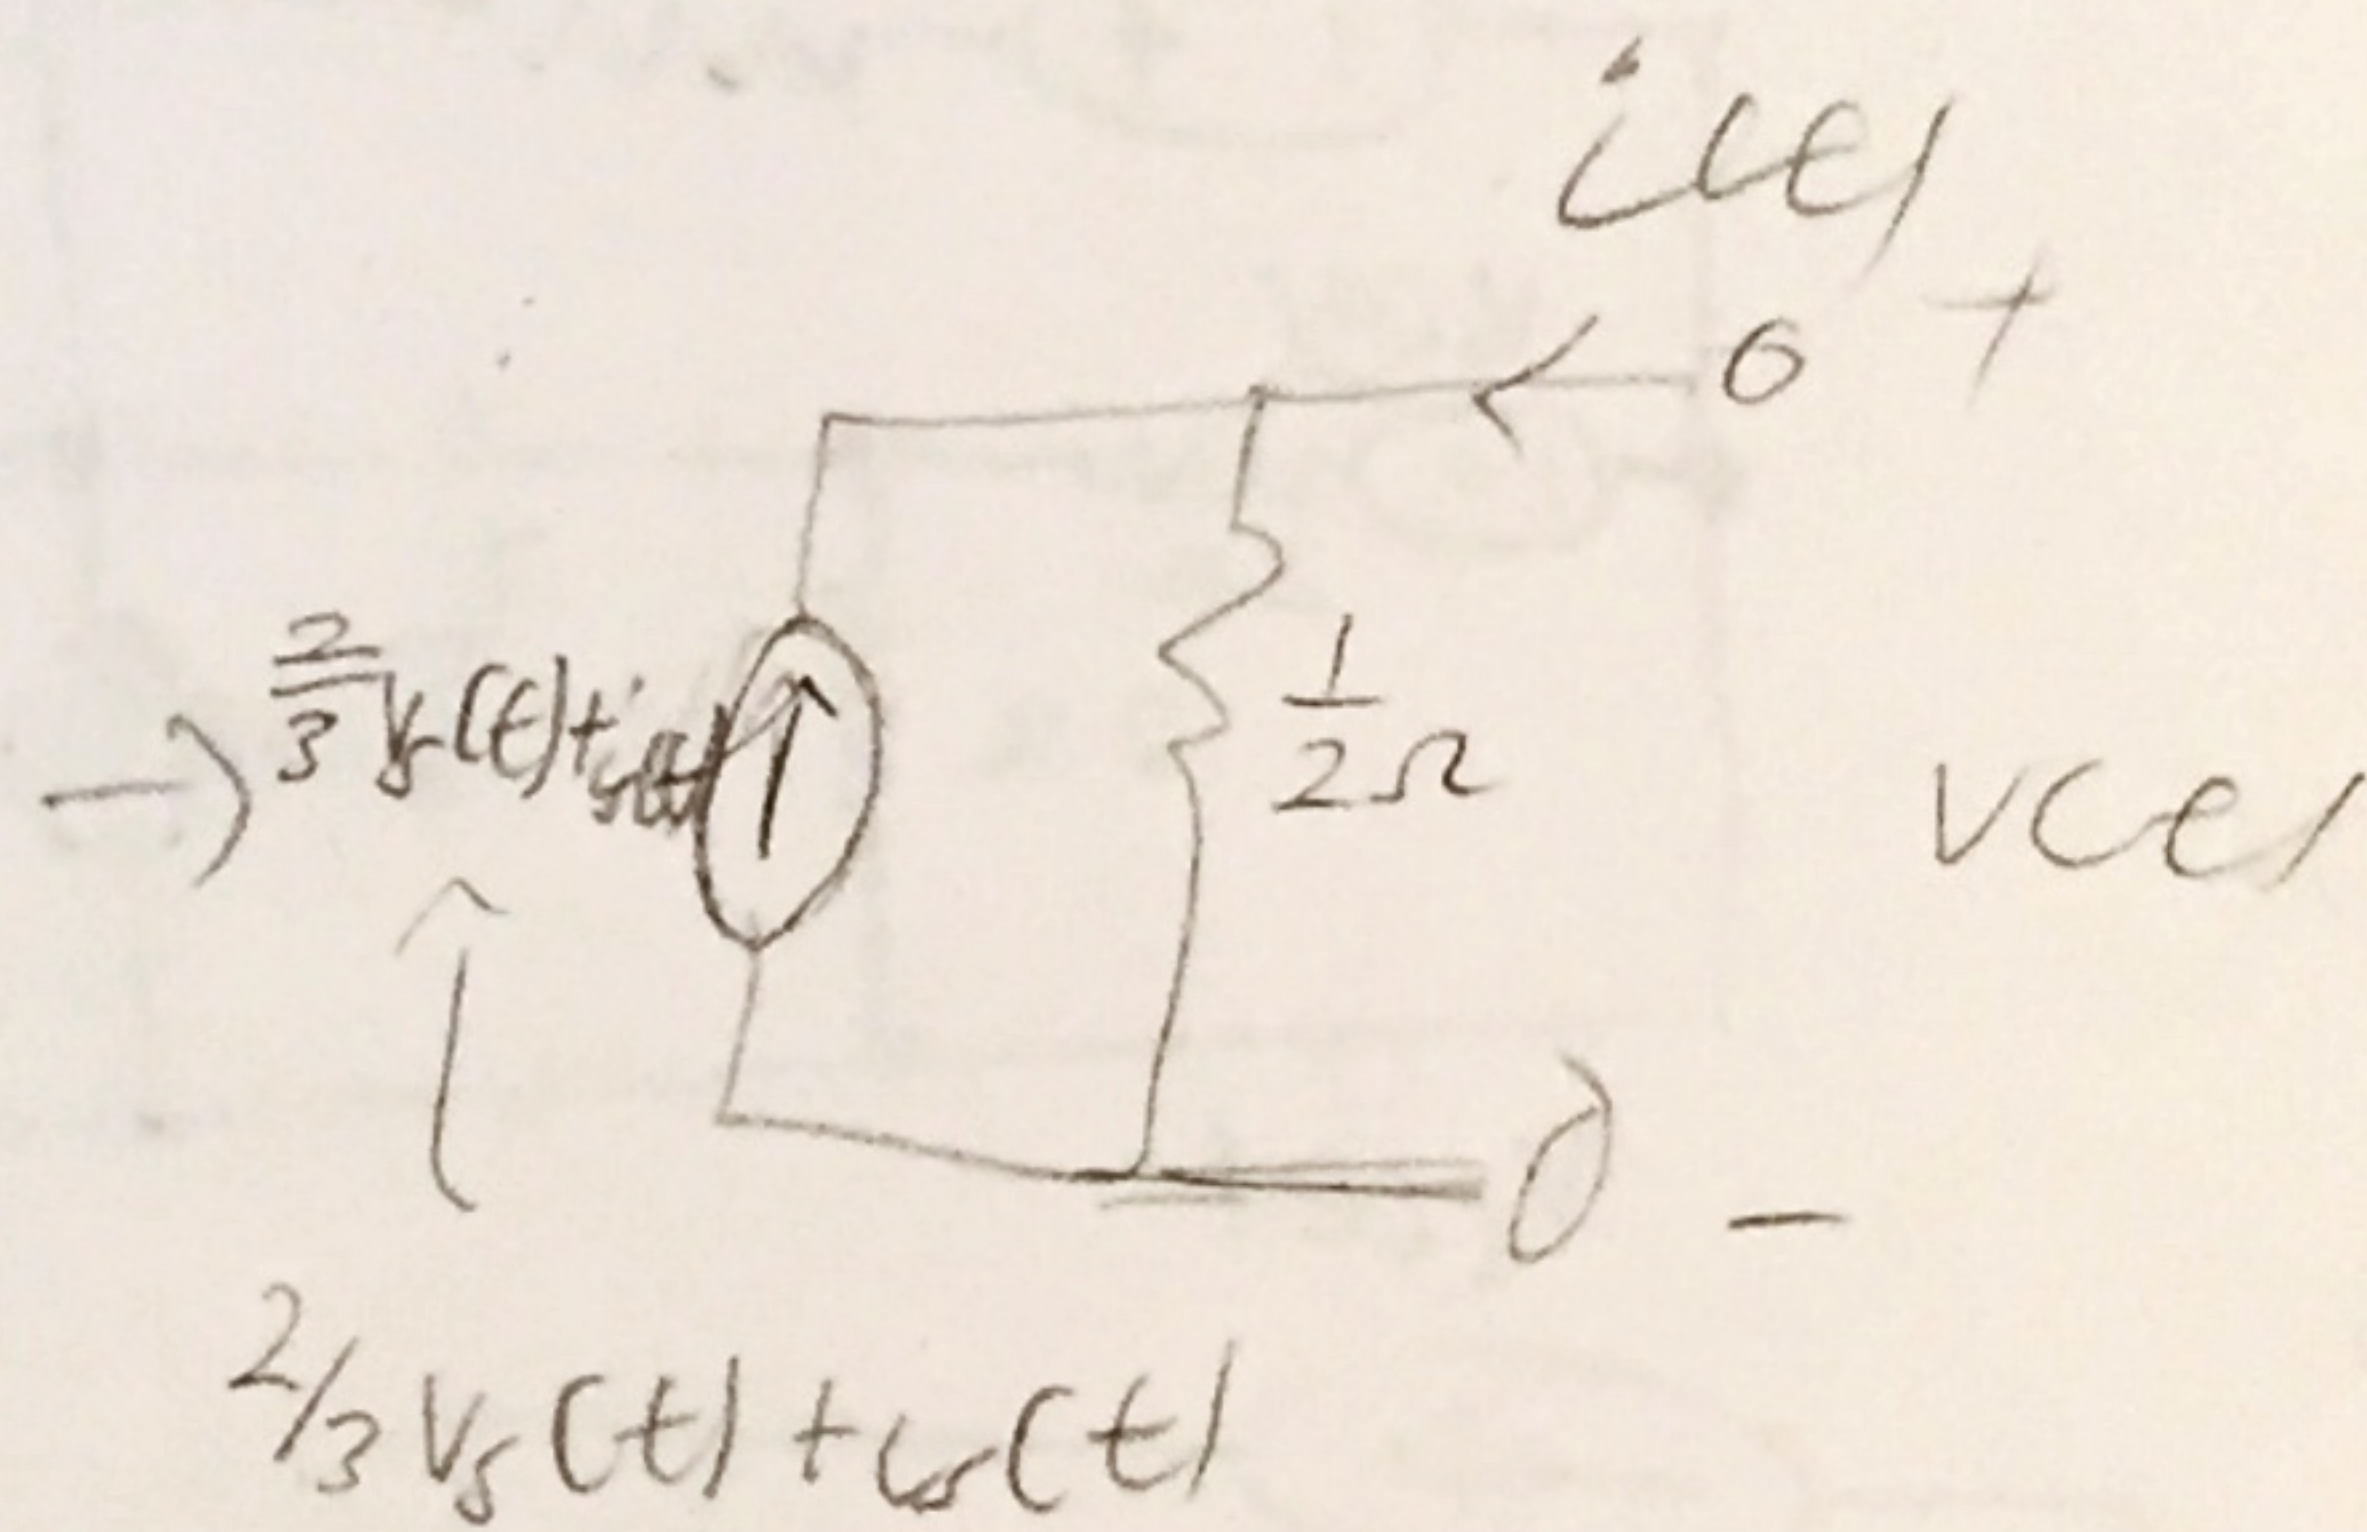 i(t)
+
2/3 vs(t)+is(t)
1/2 Ω
v(t)
-
2/3 vs(t)+is(t)